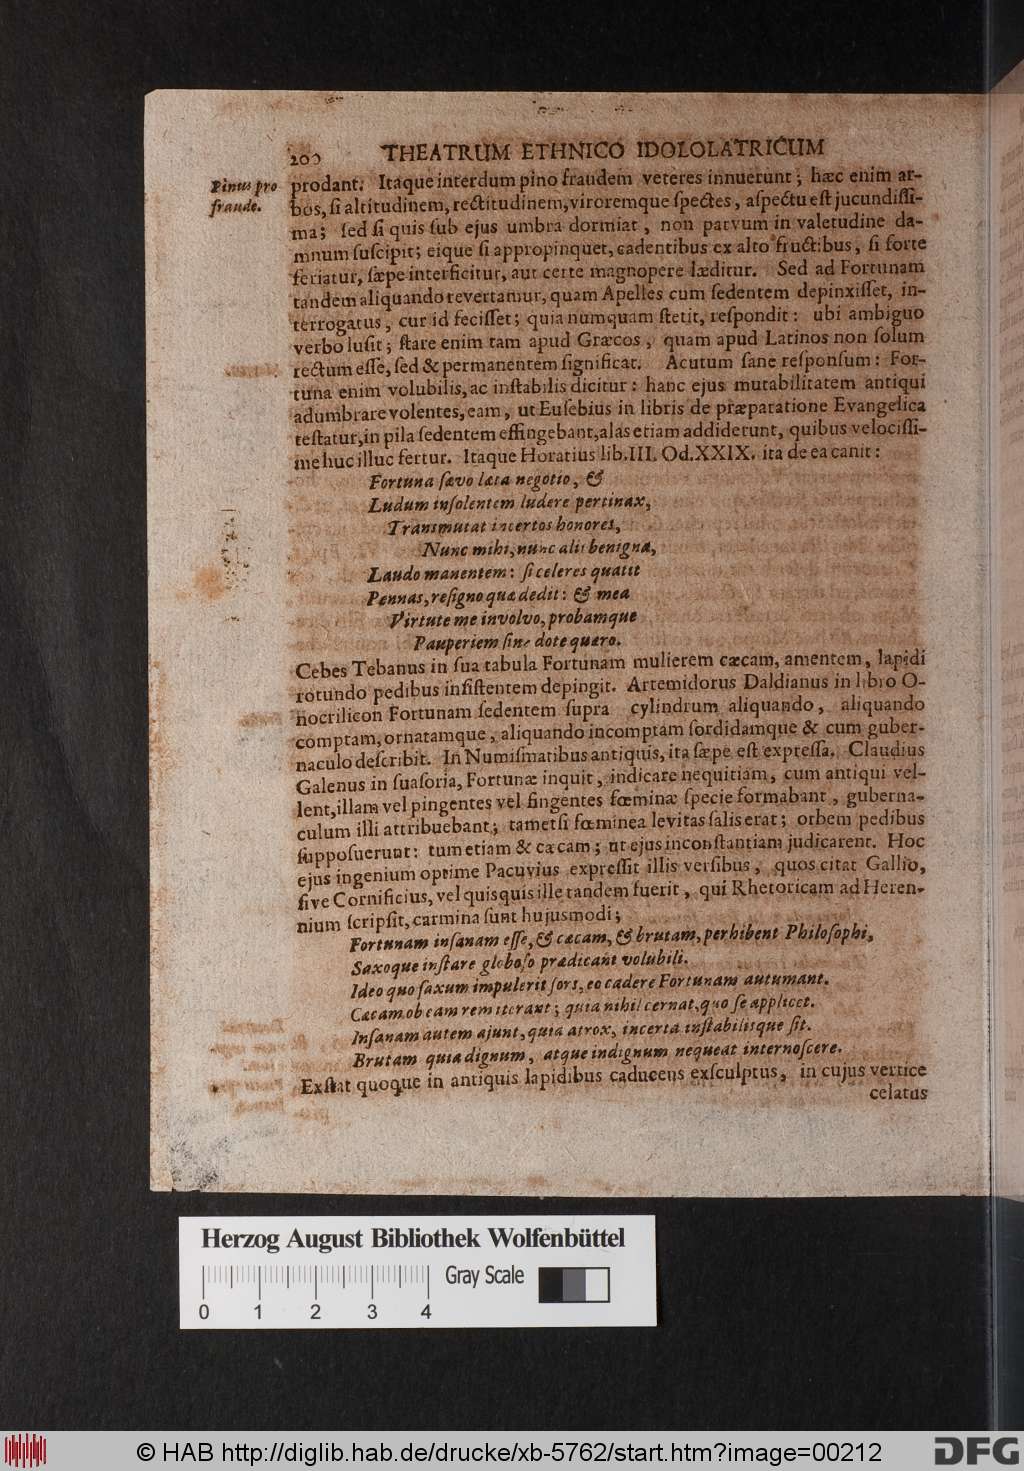 200 THEATRUM ETHNICO IDOLOLATRICUM
Pinus pro
fraude.
prodant. Itaque interdum pino fraudem veteres innuerunt; hæc enim ar-
bos, ſi altitudinem, rectitudinem, viroremque ſpectes, aſpectu eſt jucundiſſi-
ma; ſed ſi quis ſub ejus umbra dormiat, non parvum in valetudine da-
mnum ſuſcipit; eique ſi appropinquet, cadentibus ex alto fructibus, ſi forte
feriatur, ſæpe interficitur, aut certe magnopere læditur. Sed ad Fortunam
tandem aliquando revertamur, quam Apelles cum ſedentem depinxiſſet, in-
terrogatus, cur id feciſſet; quia numquam ſtetit, reſpondit: ubi ambiguo
verbo luſit; ſtare enim tam apud Græcos, quam apud Latinos non ſolum
rectum eſſe, ſed & permanentem ſignificat. Acutum ſane reſponſum: For-
tuna enim volubilis, ac inſtabilis dicitur: hanc ejus mutabilitatem antiqui
adumbrare volentes, eam, ut Euſebius in libris de præparatione Evangelica
teſtatur, in pila ſedentem effingebant, alas etiam addiderunt, quibus velociſſi-
me huc illuc fertur. Itaque Horatius lib. III. Od. XXIX. ita de ea canit:
Fortuna ſævo læta negotio, &
Ludum inſolentem ludere pertinax,
Transmutat incertos honores,
Nunc mihi, nunc alii benigna,
Laudo manentem: ſi celeres quatit
Pennas, reſigno quæ dedit: & mea
Virtute me involvo, probamque
Pauperiem ſine dote quæro.
Cebes Tebanus in ſua tabula Fortunam mulierem cæcam, amentem, lapidi
rotundo pedibus inſiſtentem depingit. Artemidorus Daldianus in libro O-
nocriticon Fortunam ſedentem ſupra cylindrum aliquando, aliquando
comptam, ornatamque, aliquando incomptam ſordidamque & cum guber-
naculo deſcribit. In Numiſmatibus antiquis, ita ſæpe eſt expreſſa. Claudius
Galenus in ſuaſoria, Fortunæ inquit, indicare nequitiam, cum antiqui vel-
lent, illam vel pingentes vel fingentes fœminæ ſpecie formabant, guberna-
culum illi attribuebant; tametſi fœminea levitas ſalis erat; orbem pedibus
ſuppoſuerunt: tum etiam & cæcam; ut ejus inconſtantiam judicarent. Hoc
ejus ingenium optime Pacuvius expreſſit illis verſibus, quos citat Gallio,
ſive Cornificius, vel quisquis ille tandem fuerit, qui Rhetoricam ad Heren-
nium ſcripſit, carmina ſunt hujusmodi;
Fortunam inſanam eſſe, & cæcam, & brutam, perhibent Philoſophi,
Saxoque inſtare globoſo prædicant volubili.
Ideo quo ſaxum impulerit ſors, eo cadere Fortunam autumant.
Cæcam ob eam rem iterant; quia nihil cernat, quo ſe applicet.
Inſanam autem ajunt, quia atrox, incerta inſtabilisque ſit.
Brutam quia dignum, atque indignum nequeat internoſcere.
Exſtat quoque in antiquis lapidibus caduceus exſculptus, in cujus vertice
celatus
Herzog August Bibliothek Wolfenbüttel
Gray Scale
0 1 2 3 4
© HAB http://diglib.hab.de/drucke/xb-5762/start.htm?image=00212
DFG